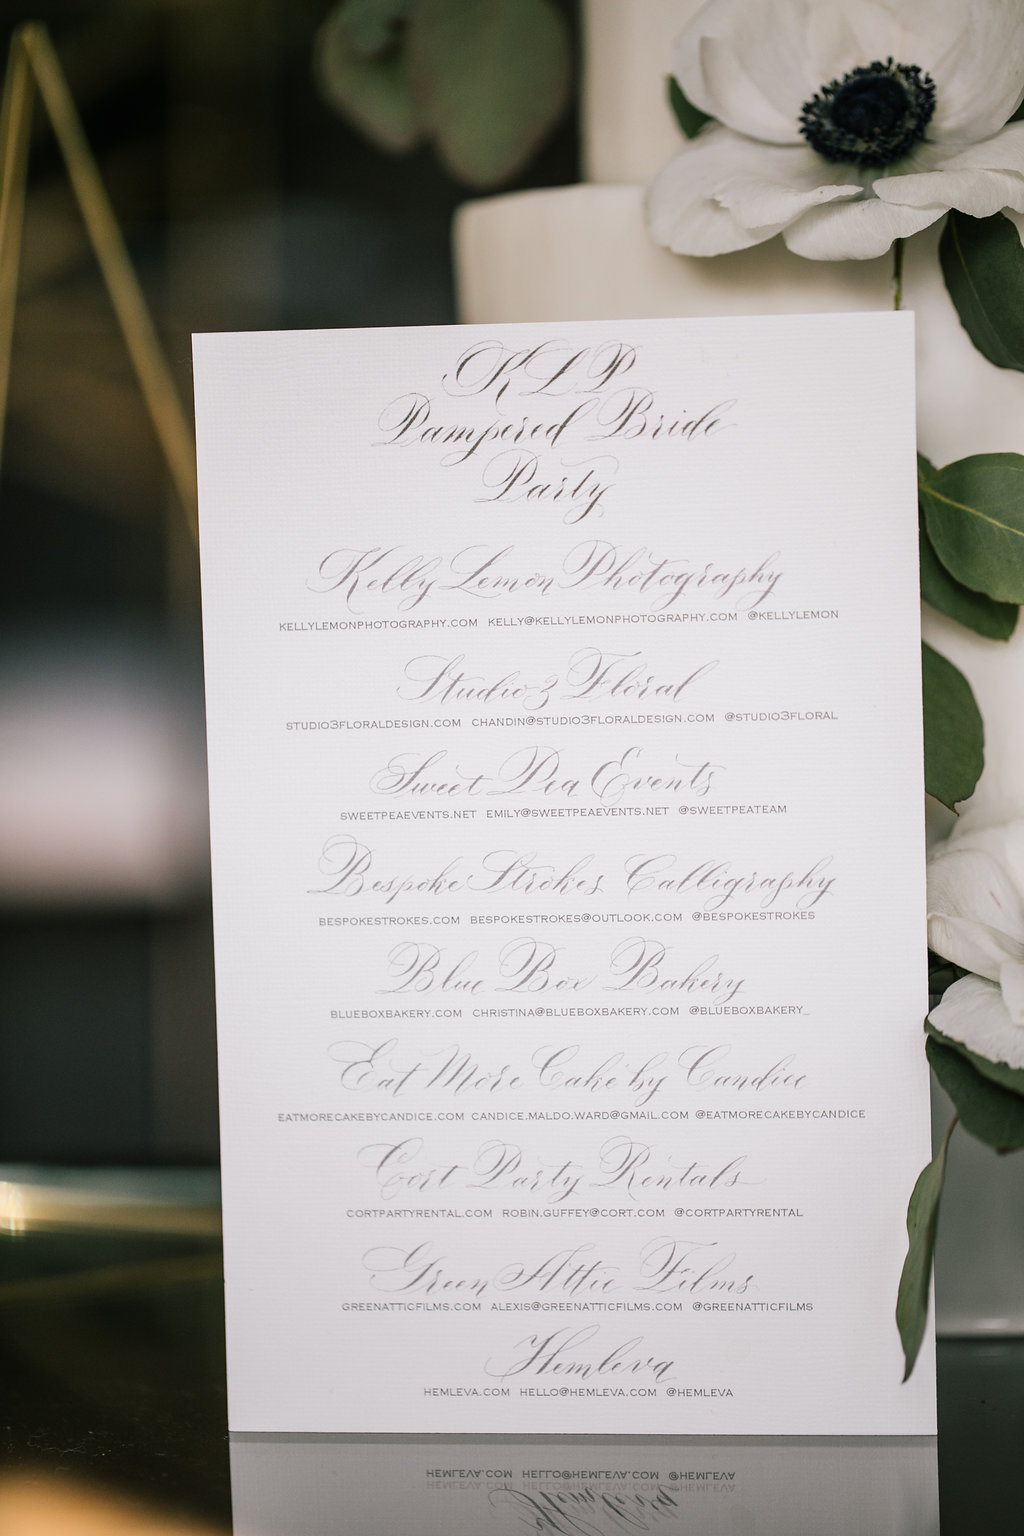 KLP
Pampered Bride
Party
Kelly Lemon Photography
KELLYLEMONPHOTOGRAPHY.COM KELLY@KELLYLEMONPHOTOGRAPHY.COM @KELLYLEMON
Studio 3 Floral
STUDIO3FLORALDESIGN.COM CHANDIN@STUDIO3FLORALDESIGN.COM @STUDIO3FLORAL
Sweet Pea Events
SWEETPEAEVENTS.NET EMILY@SWEETPEAEVENTS.NET @SWEETPEATEAM
Bespoke Strokes Calligraphy
BESPOKESTROKES.COM BESPOKESTROKES@OUTLOOK.COM @BESPOKESTROKES
Blue Box Bakery
BLUEBOXBAKERY.COM CHRISTINA@BLUEBOXBAKERY.COM @BLUEBOXBAKERY_
Eat More Cake by Candice
EATMORECAKEBYCANDICE.COM CANDICE.MALDO.WARD@GMAIL.COM @EATMORECAKEBYCANDICE
Cort Party Rentals
CORTPARTYRENTAL.COM ROBIN.GUFFEY@CORT.COM @CORTPARTYRENTAL
Green Attic Films
GREENATTICFILMS.COM ALEXIS@GREENATTICFILMS.COM @GREENATTICFILMS
Hemleva
HEMLEVA.COM HELLO@HEMLEVA.COM @HEMLEVA
HEMLEVA.COM HELLO@HEMLEVA.COM @HEMLEVA
Hemleva